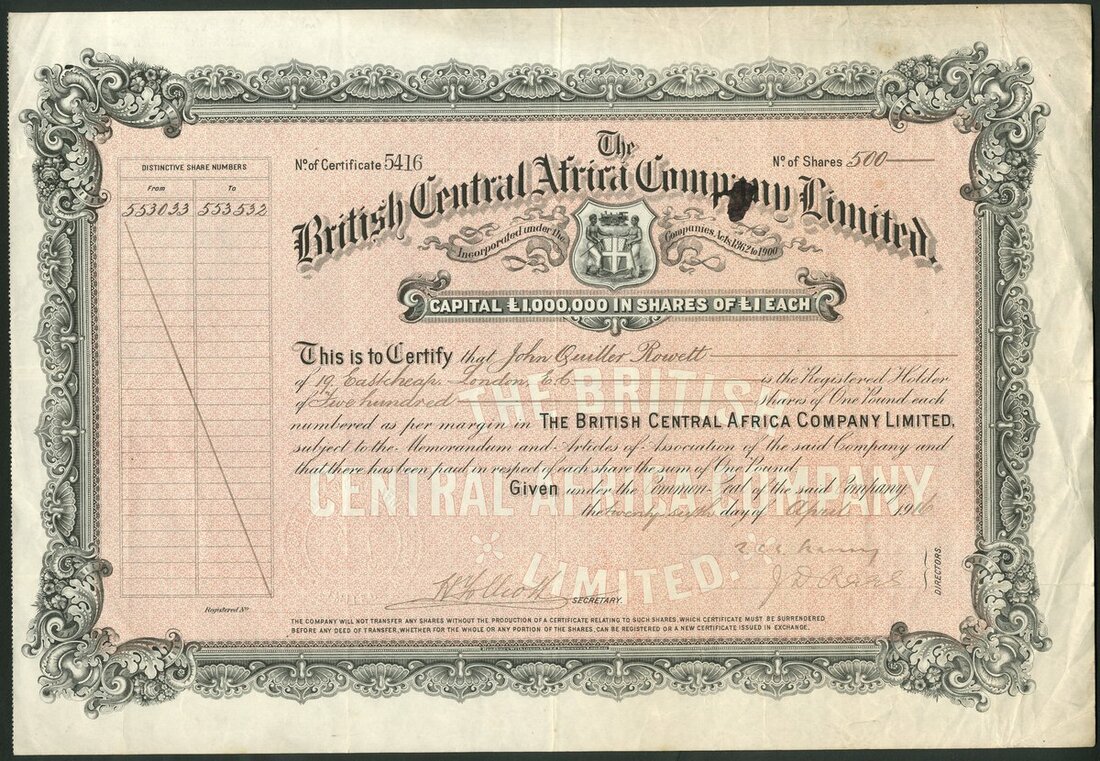 DISTINCTIVE SHARE NUMBERS
From To
553033 553532
Registered No
No. of Certificate 5416
No. of Shares 500
The
British Central Africa Company Limited.
Incorporated under the Companies Acts, 1862 to 1900
CAPITAL £1,000,000 IN SHARES OF £1 EACH
This is to Certify that John Quiller Rowett
of 19, Eastcheap. London, E.C. is the Registered Holder
of Five hundred shares of One Pound each
numbered as per margin in THE BRITISH CENTRAL AFRICA COMPANY LIMITED,
subject to the Memorandum and Articles of Association of the said Company and
that there has been paid in respect of each share the sum of One Pound.
Given under the Common Seal of the said Company
the twenty sixth day of April 1916
THE BRITIS
CENTRAL AFRICA COMPANY
LIMITED.
SECRETARY.
DIRECTORS.
THE COMPANY WILL NOT TRANSFER ANY SHARES WITHOUT THE PRODUCTION OF A CERTIFICATE RELATING TO SUCH SHARES, WHICH CERTIFICATE MUST BE SURRENDERED
BEFORE ANY DEED OF TRANSFER, WHETHER FOR THE WHOLE OR ANY PORTION OF THE SHARES, CAN BE REGISTERED OR A NEW CERTIFICATE ISSUED IN EXCHANGE.